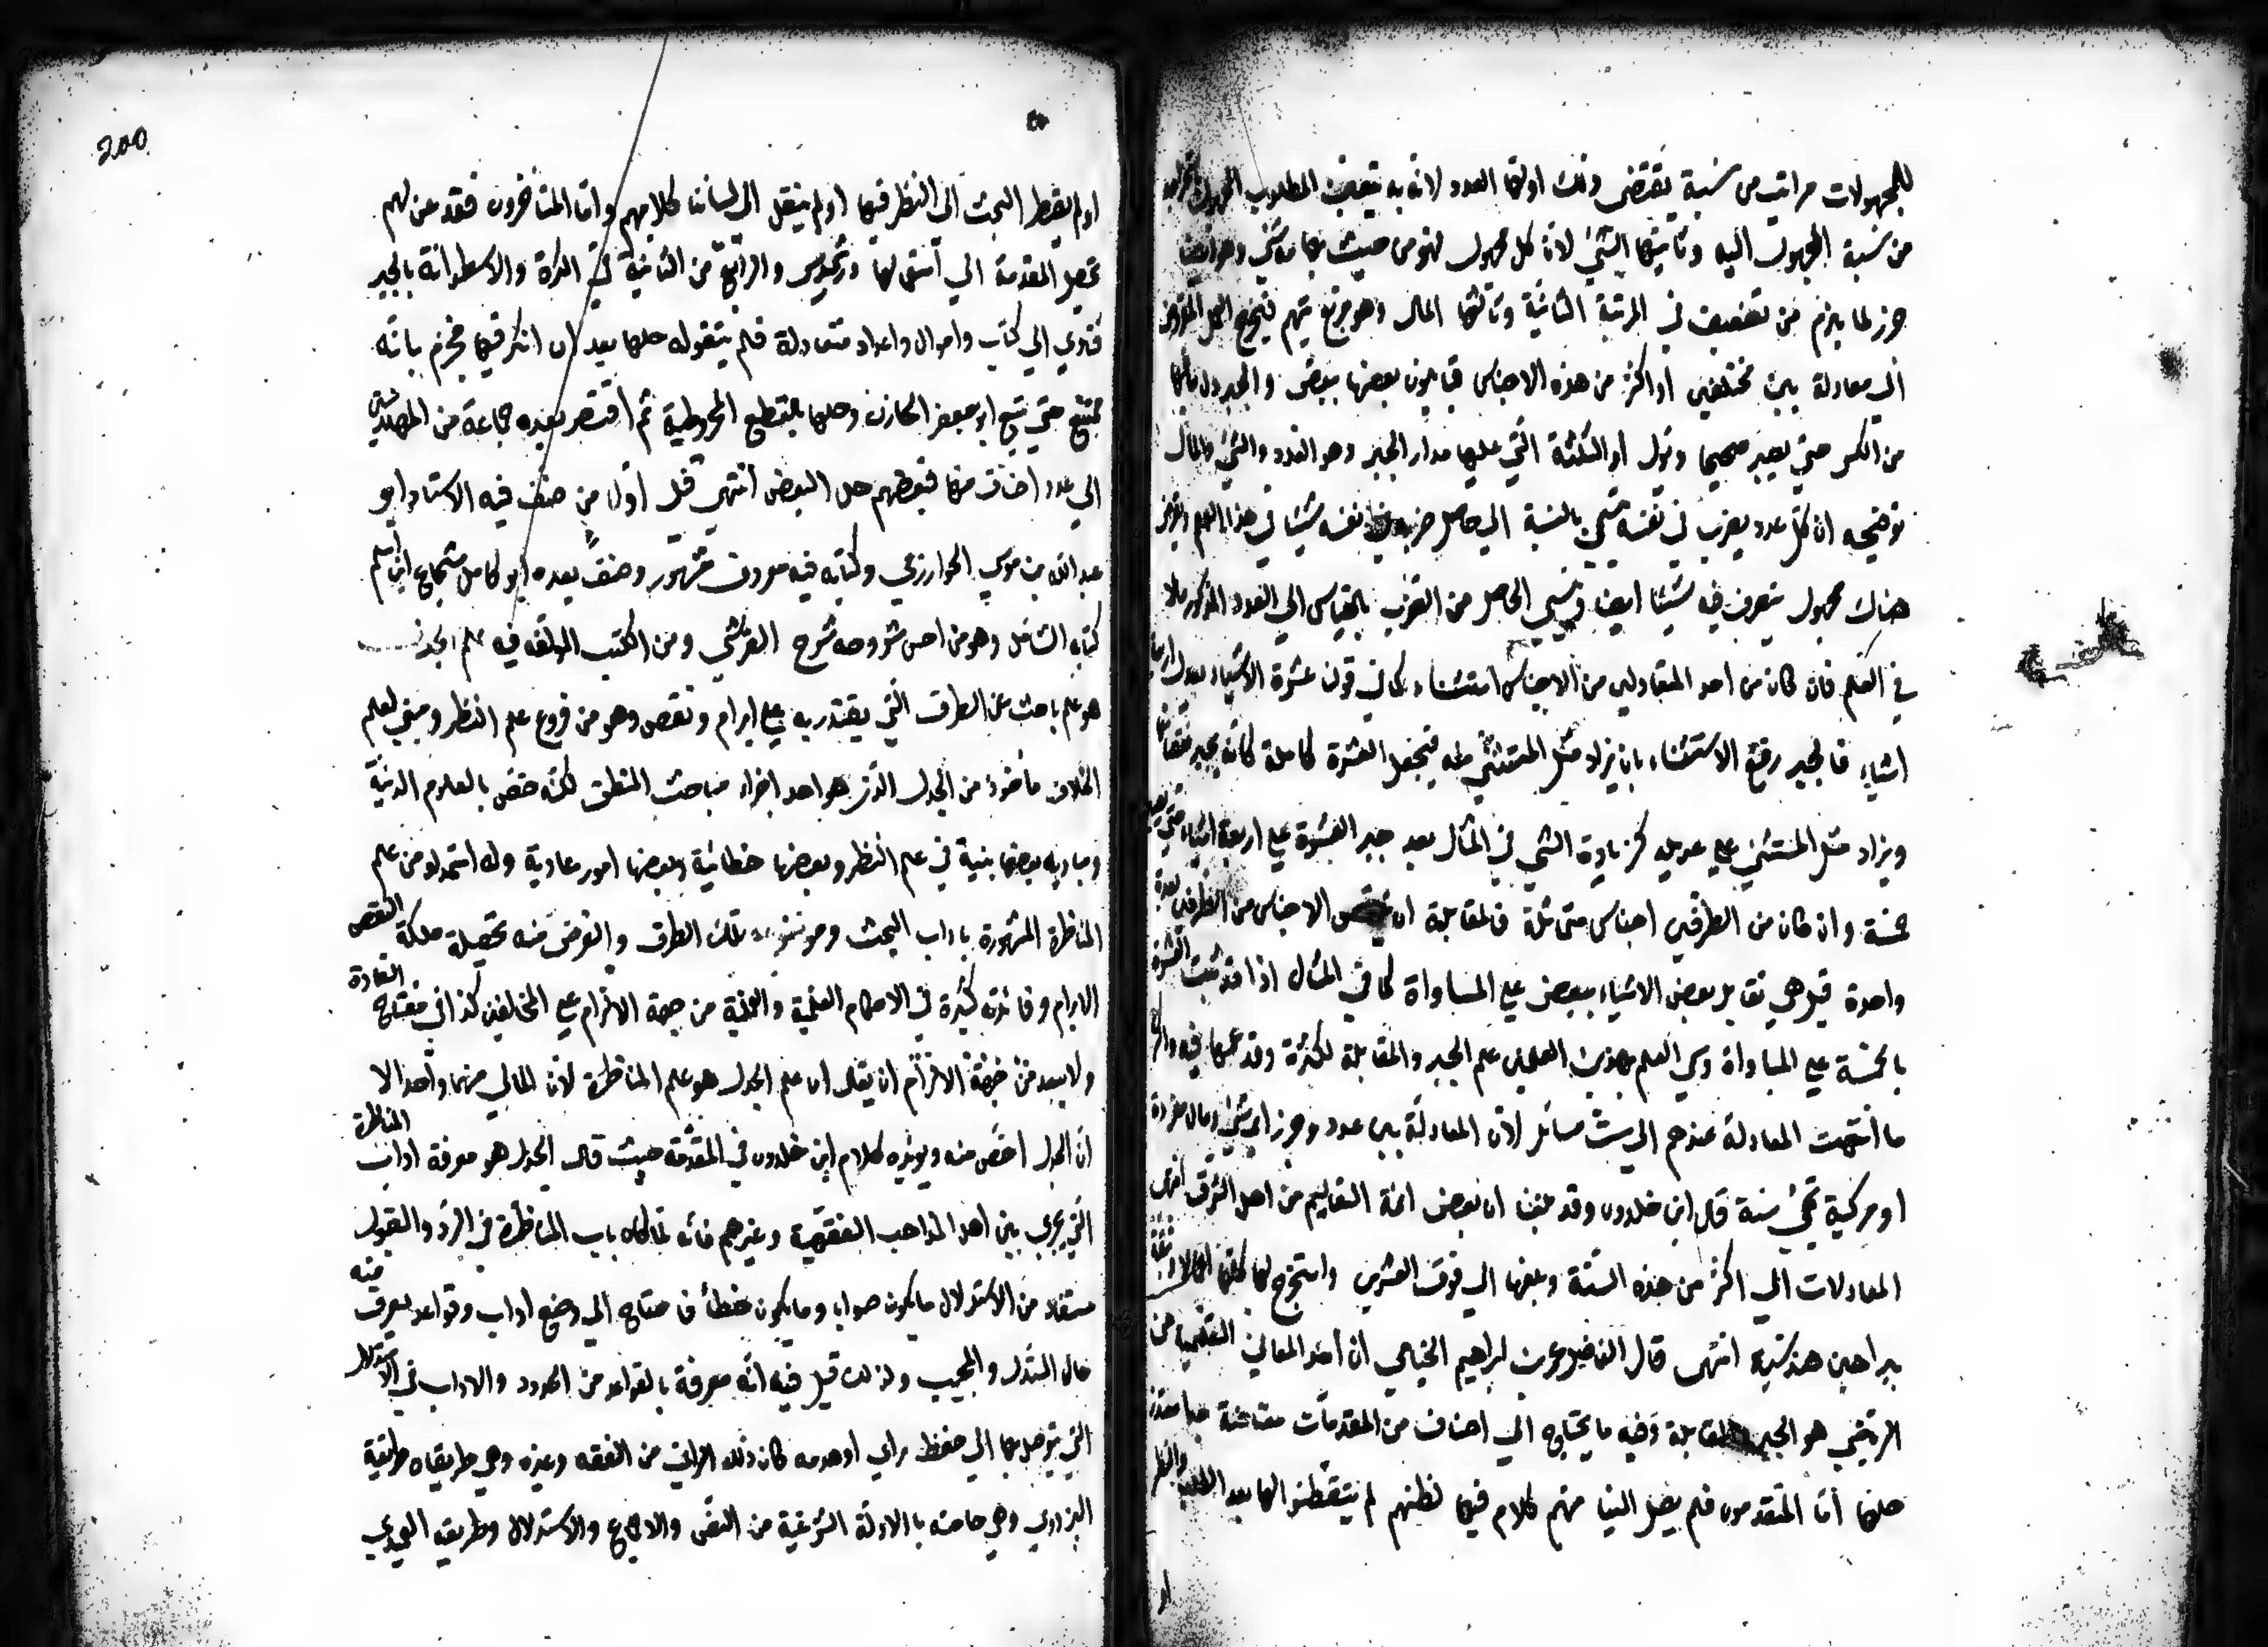 للمجهولات مراتب من نسبة يقتضى ذلك اولها العدد لانه به يتعين المطلوب المجهول
من نسبة المجهول اليه وثانيتها الشئ لان كل مجهول فهو من حيث ابهامه شئ وهو ايضا
جزر لما يلزم من تضعيفه في المرتبة الثانية وثالثها المال وهو مربع مبهم فيخرج العمل المفروض
الى معادلة بين مختلفين او اكثر من هذه الاجناس فيقابلون بعضها ببعض والجبر
من الكسر حتى يصير صحيحا ويؤل الى الثلثة التي عليها مدار الجبر وهو العدد والشئ والمال
توضيحه ان كل عدد يضرب في نفسه يسمى بالنسبة الي حاصل ضربه في نفسه شيئا في هذا العلم ويفرض
هناك مجهول يتصرف فيه شيئا ايضا ويسمى الحاصل من الضرب بالقياس الي العدد المذكور مالا
في العلم فان كان من احد المتعادلين من الاجناس استثناء كما في قولنا عشرة الاشياء يعدل اربعة
اشياء فالجبر رفع الاستثناء بان يزاد مثل المستثنى عليه فيجعل العشرة كاملة كانه يجبر نقصانها
ويزاد مثل المستثنى على عديله كزيادة الشئ في المثال بعد جبر العشرة على اربعة اشياء حتى تصير
خمسة وان كان من الطرفين اجناس متماثلة فالمقابلة ان تنقص الاجناس من الطرفين بعدة
واحدة قيل هي تقابل بعض الاشياء ببعض على المساواة كما في المثال اذا قوبلت العشرة
بالخمسة على المساواة وسمي العلم بهذين العلمين علم الجبر والمقابلة لكثرة وقوعهما فيه واكثر
ما انتهت المعادلة عندهم الي ست مسائل لان المعادلة بين عدد وجزر اي شئ ومال مفردة
او مركبة تجئ ستة قال ابن خلدون وقد بلغنا ان بعض ائمة التعاليم من اهل الشرق انهى
المعادلات الي اكثر من هذه الستة وبلغها الي فوق العشرين واستخرج لها كلها اعمالا وثيقة
ببراهين هندسية انتهى قال الفاضل عمر بن ابراهيم الخيامي ان احد المعاني التعليمية من
الرياضي هو الجبر والمقابلة وفيه ما يحتاج الي اصناف من المقدمات معتاصة جدا متعذر
حلها اما المتقدمون فلم يصل الينا منهم كلام فيها لعلهم لم يتفطنوا لها بعد الطلب والنظر
او
200
اولم يضطر البحث الى النظر فيها اولم ينقل الى لساننا كلامهم واما المتاخرون فقد عن لهم
تحليل المقدمة التي استعملها ارشميدس والرابع من الثانية في الكرة والاسطوانة بالجبر
فتادي الي كتاب واموال واعداد متعادلة فلم يتفق له حلها بعد ان افكر فيها فجزم بانه
ممتنع حتي تبع ابو جعفر الخازن وحلها بالقطوع المخروطية ثم افتقر بعده جماعة من المهندسين
الي عدد اصناف منها فبعضهم حل البعض انتهى قيل اول من صنف فيه الاستاد ابو
عبدالله بن موسى الخوارزمي وكتابه فيه معروف مشهور وصنف بعده ابو كامل شجاع ابن اسلم
كتابه الشامل وهو من احسن شروحه شرح القرشي ومن الكتب المؤلفة فيه علم الجدل
هو علم باحث عن الطرق التي يقتدر بها على ابرام ونقص وهو من فروع علم النظر ومبني لعلم
الخلاف ماخوذ من الجدل الذي هو احد اجزاء مباحث المنطق لكنه خص بالعلوم الدينية
ومباديه بعضها مبنية في علم النظر وبعضها خطابية وبعضها امور عادية وله استمداد من علم
المناظرة المشهورة باداب البحث وموضوعه تلك الطرق والغرض منه تحصيل ملكة النقص
الابرام وفائدته كثيرة في الاحكام العلمية والعملية من جهة الالزام على المخالفين كذا في مفتاح السعادة
ولا يبعد من جهة الالزام ان يقال ان علم الجدل هو علم المناظرة لان المال منهما واحد الا
ان الجدل اخص منه ويؤيده كلام ابن خلدون في المقدمة حيث قال الجدل هو معرفة اداب المناظرة
التي يجري بين اهل المذاهب الفقهية وغيرهم فانه لما كان باب المناظرة في الرد والقبول
متسعا من الاستدلال ما يكون صوابا وما يكون خطأ فاحتاج الي وضع اداب وقواعد يعرف منه
حال المستدل والمجيب ولذلك قيل فيه انه معرفة بالقواعد من الحدود والاداب في الاستدلال
التي يتوصل بها الي حفظ راي او هدمه كان ذلك الراي من الفقه وغيره وهي طريقان طريقة
البزدوي وهي خاصة بالادلة الشرعية من النص والاجماع والاستدلال وطريقة العميدي